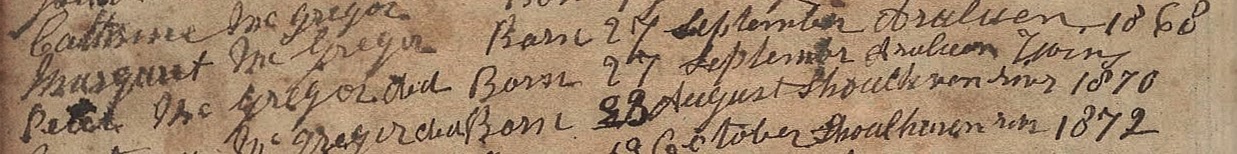 Catherine Mc Gregor Born 27 September Araluen 1868
Margaret Mc Gregor Born 27 September Araluen Twins
Peter Mc Gregor ded Born August Shoalhaven river 1870
Mc Gregor ded Born October Shoalhaven river 1872